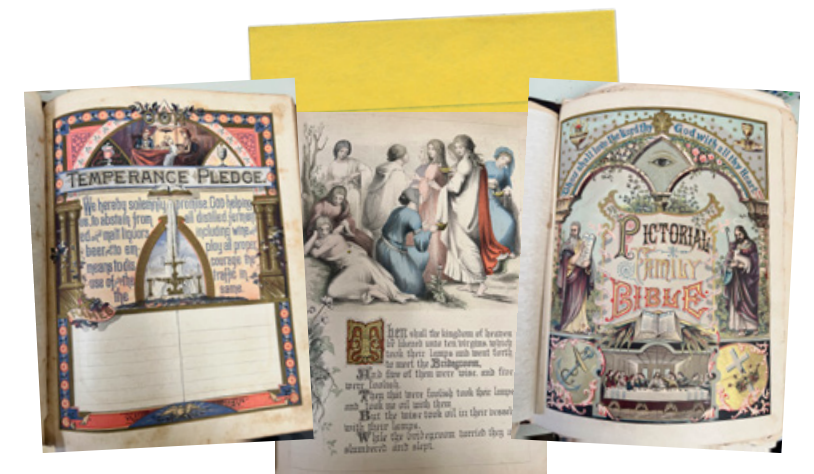 TEMPERANCE PLEDGE.
We hereby solemnly promise, God helping
us, to abstain from all distilled, ferment-
ed and malt liquors including wine
beer to em- ploy all proper
means to courage the
use of traffic in
the same.
Then shall the kingdom of heaven
be likened unto ten virgins, which
took their lamps and went forth
to meet the Bridegroom.
And five of them were wise, and five
were foolish.
They that were foolish took their lamps
and took no oil with them
But the wise took oil in their vessels
with their lamps.
While the bridegroom tarried they
slumbered and slept.
Thou shalt love the Lord thy God with all thy Heart
PICTORIAL
FAMILY
BIBLE